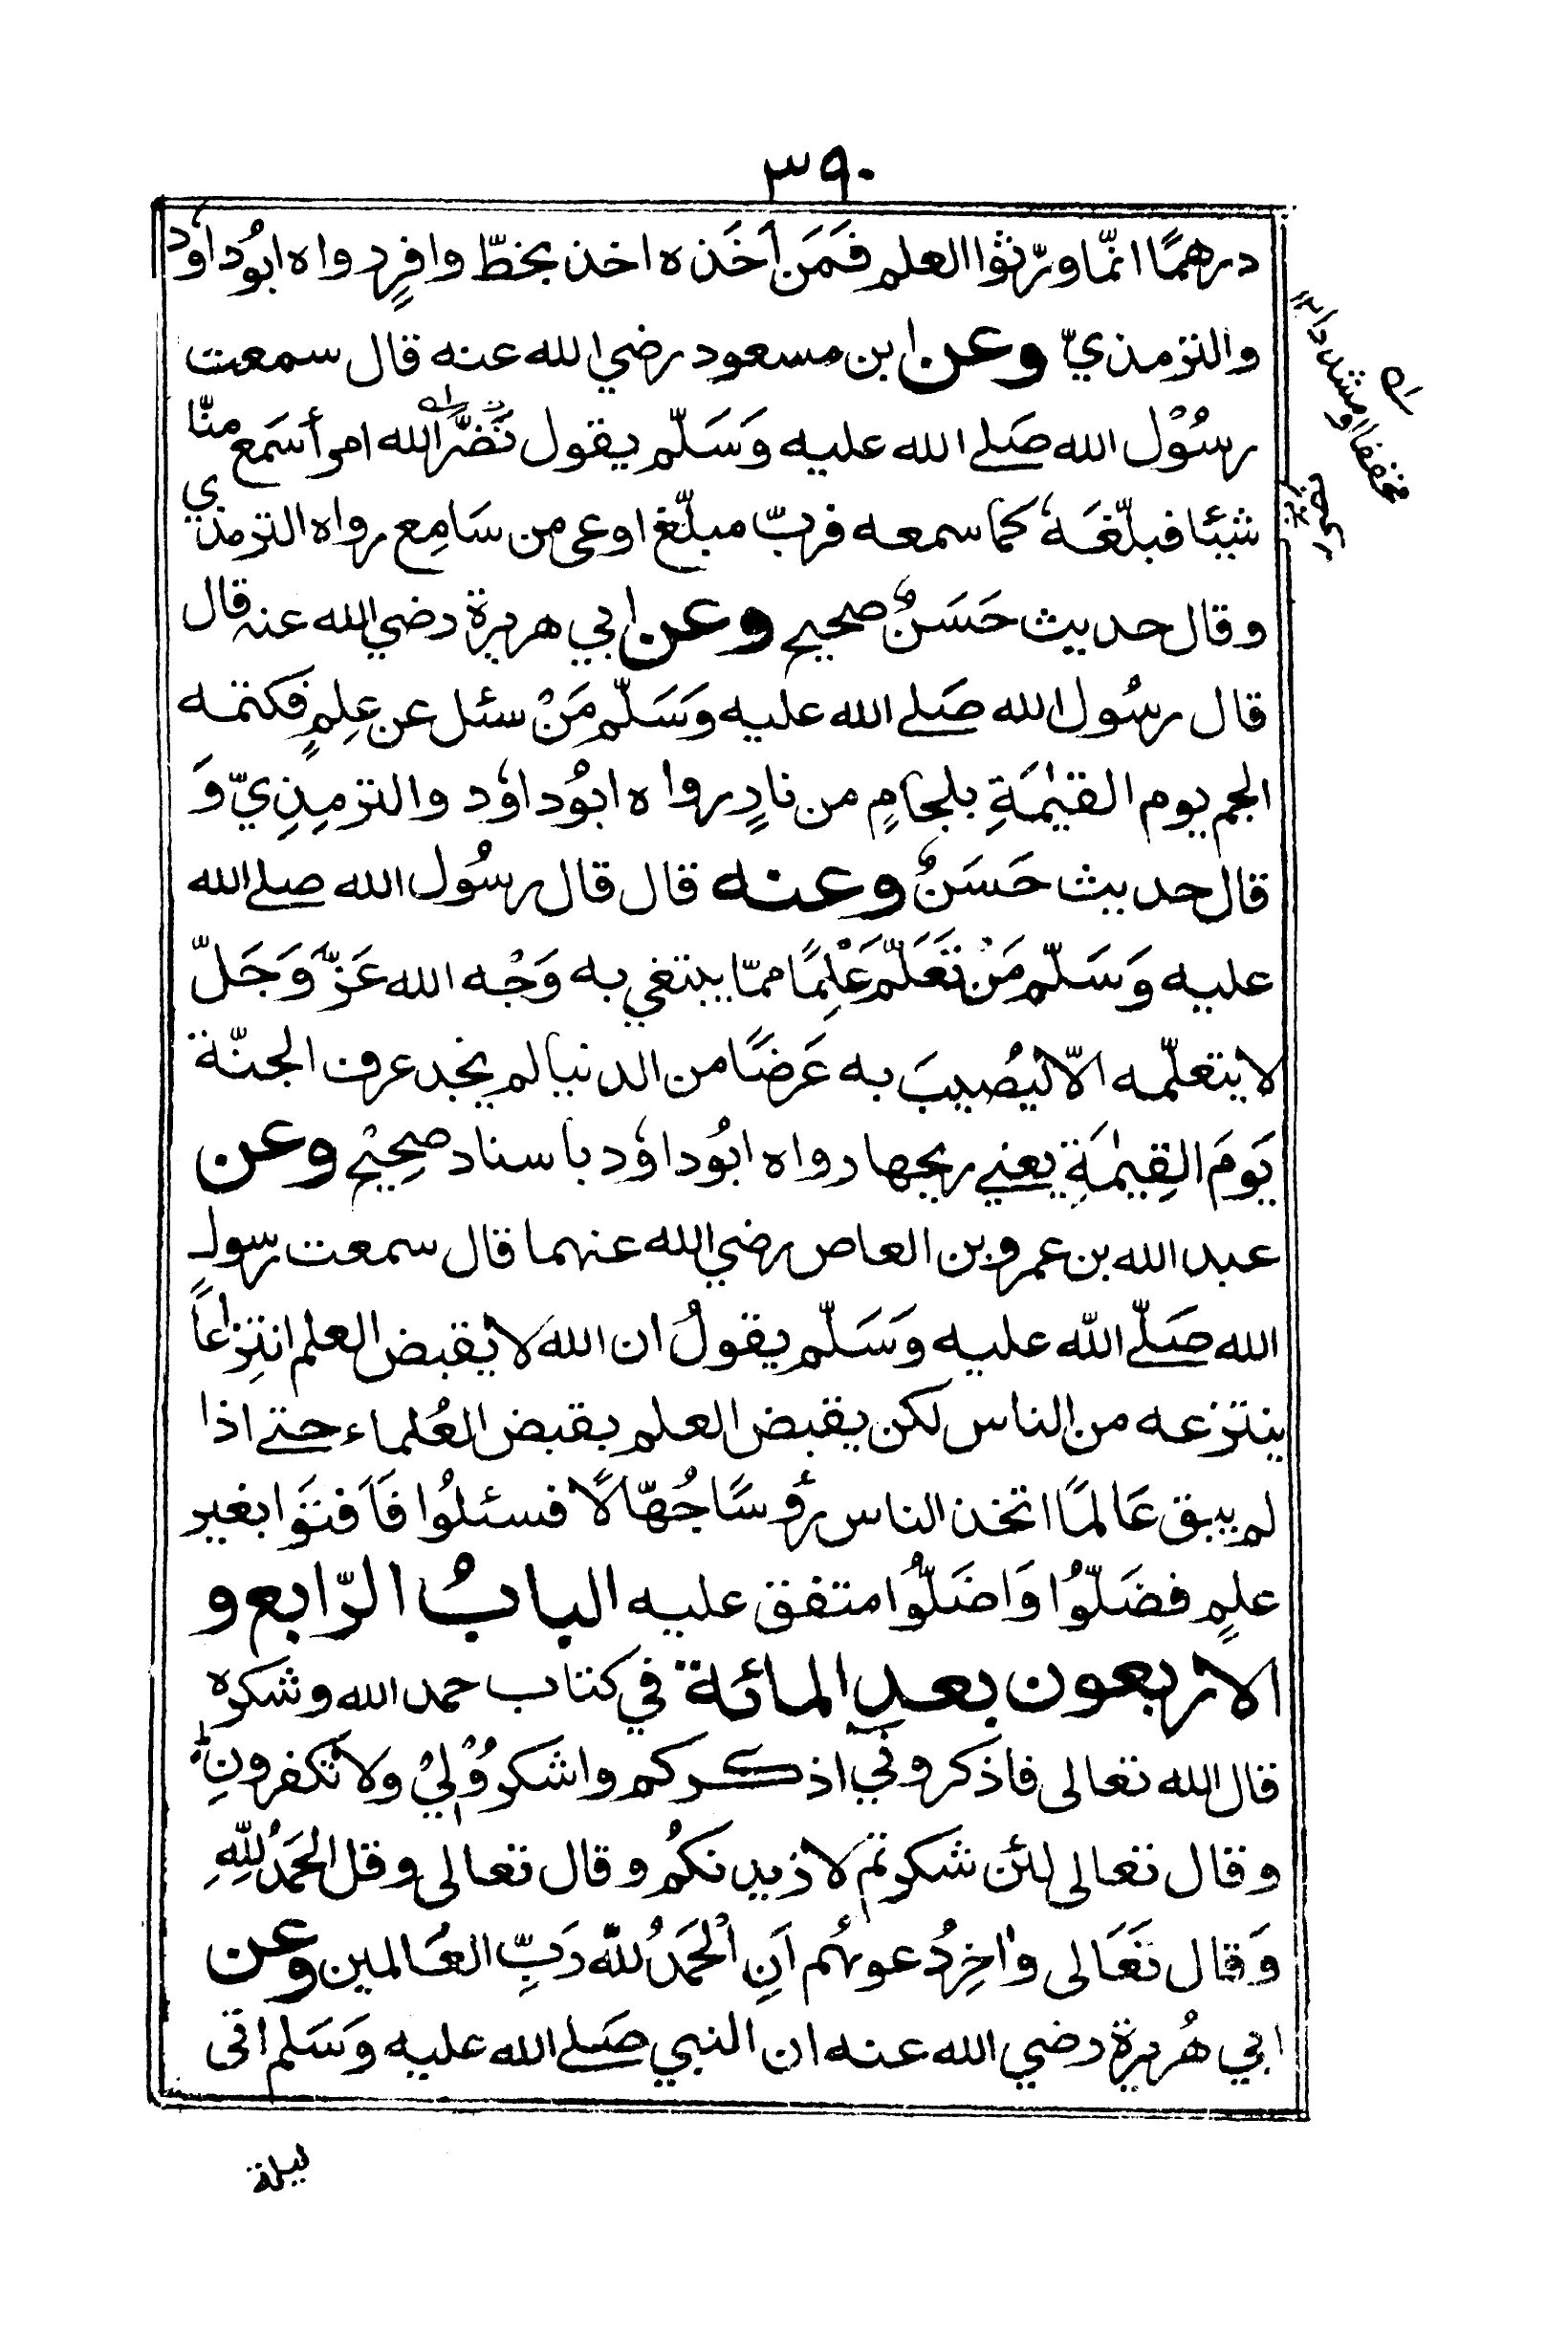 ٣٩٠
درهمًا انّما ورّثوا العلم فَمَن أَخَذه اخذ بخطّ وافرٍ رواه ابُو داود
والترمذيّ وعن ابن مسعود رضي الله عنه قال سمعت
رسُوْل الله صَلے الله عليه وَسَلّم يقول نَضَّر الله امرأ سَمع منّا
شيئا فبلّغَهٗ كما سمعه فربّ مبلّغ اوعى من سَامِع رواه الترمذي
وقال حديث حَسَنٌ صحيح وعن ابي هريرة رضي الله عنه قال
قال رسُول الله صَلے الله عليه وَسَلّم مَنْ سئل عن عِلمٍ فكتمه
الجم يوم القيٰمَةِ بلجامٍ من نارٍ رواه ابوُ داوٗد والترمِذِيّ وَ
قال حديث حَسَنٌ وعنه قال قال رسُول الله صلے الله
عليه وَسَلّم مَنْ تَعَلّمَ عَلِمًا ممّا يبتغي به وَجْه الله عَزّ وَجَلّ
لا يتعلّمه الّا ليُصيبَ به عَرضًا من الدنيا لم يجد عرف الجنّة
يَومَ القِيٰمَةِ يعنے ريحها رواه ابوُ داوٗد باسناد صحِيْح وعن
عبد الله بن عمرو بن العاص رضي الله عنهما قال سمعت رسول
الله صَلّے الله عليه وَسَلّم يقولُ ان الله لا يُقبض العلم انتِزاعًا
ينتزعه من الناس لكن يقبض العلم بقبض العُلماء حتے اذا
لم يبق عَالمًا اتخذ الناس رؤسًا جُهّالًا فسئلوُا فَاَفتَوَا بغير
علمٍ فضَلّوُا وَاضَلّوُا متفق عليه البابُ الرّابع و
الاربعون بعد المائة في كتاب حمد الله وشكره
قال الله تعالى فاذكروني اذكركم واشكروُا لِيْ ولا تَكفرونِ
وقال تعالى لئن شكرتم لازيدنكُم وقال تعالى وقل الحَمدُ لِلّٰهِ
وَقال تَعَالى واٰخِرُ دعوٰهُم اَنِ الْحَمدُ للّٰه رَبِّ العَالمين وعن
ابي هُريرة رضي الله عنه ان النبي صَلے الله عليه وَسَلم اتى
ليلة